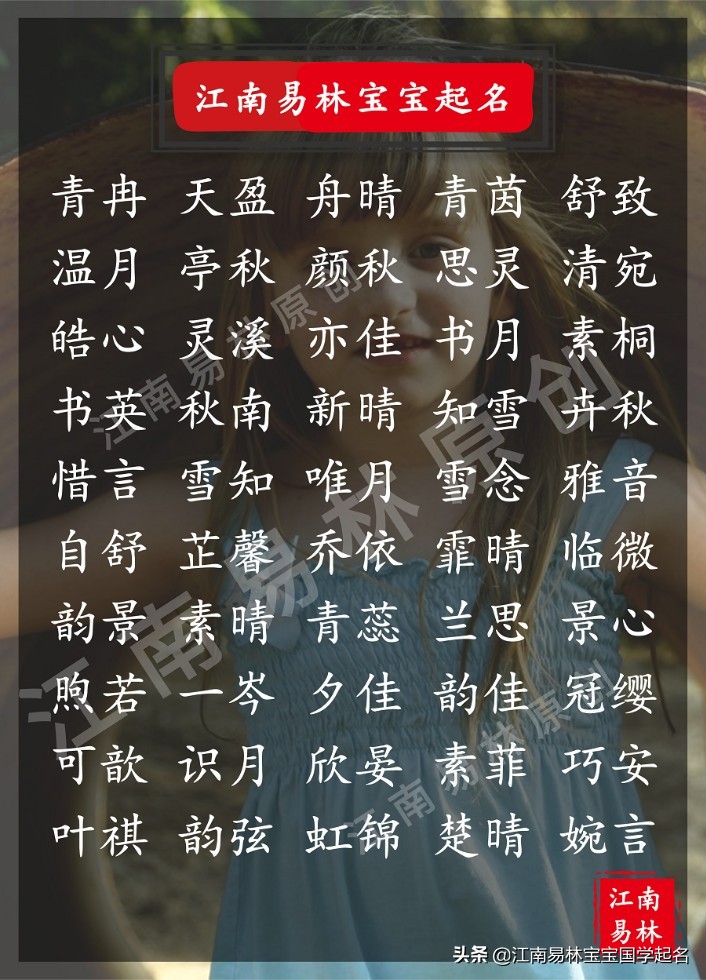 江南易林宝宝起名
青冉 天盈 舟晴 青茵 舒致
温月 亭秋 颜秋 思灵 清宛
皓心 灵溪 亦佳 书月 素桐
书英 秋南 新晴 知雪 卉秋
惜言 雪知 唯月 雪念 雅音
自舒 芷馨 乔依 霏晴 临微
韵景 素晴 青蕊 兰思 景心
煦若 一岑 夕佳 韵佳 冠缨
可歆 识月 欣晏 素菲 巧安
叶祺 韵弦 虹锦 楚晴 婉言
江南易林原创
江南易林原创
江南易林原创
江南
易林
头条 @江南易林宝宝国学起名